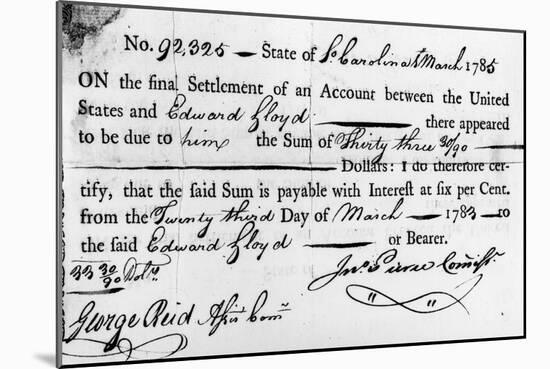 No. 92,325 — State of So. Carolina March 1785
ON the final Settlement of an Account between the United
States and Edward Lloyd — there appeared
to be due to him the Sum of Thirty three 30/90 —
— Dollars: I do therefore cer-
tify, that the said Sum is payable with Interest at six per Cent.
from the Twenty third Day of March — 1783 — to
the said Edward Lloyd — or Bearer.
33 30/90 Dolrs
Jno. Pierce Commissr.
George Reid Asst. Comr.